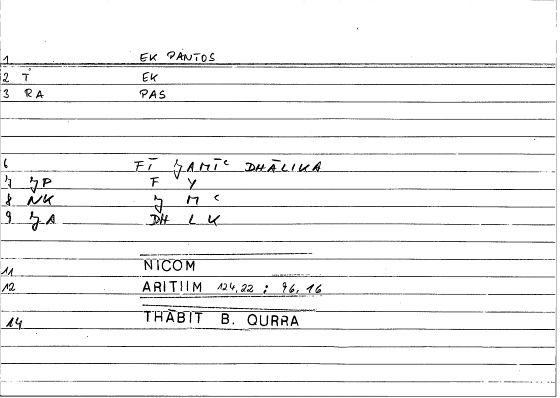 1 EK PANTOS
2 T EK
3 RA PAS
6 FĪ ǦAMĪʿ DHĀLIKA
7 ǦP F Y
8 NK Ǧ M ʿ
9 ǦA DH L K
11 NICOM
12 ARITHM 124,22 ; 96,16
14 THĀBIT B. QURRA